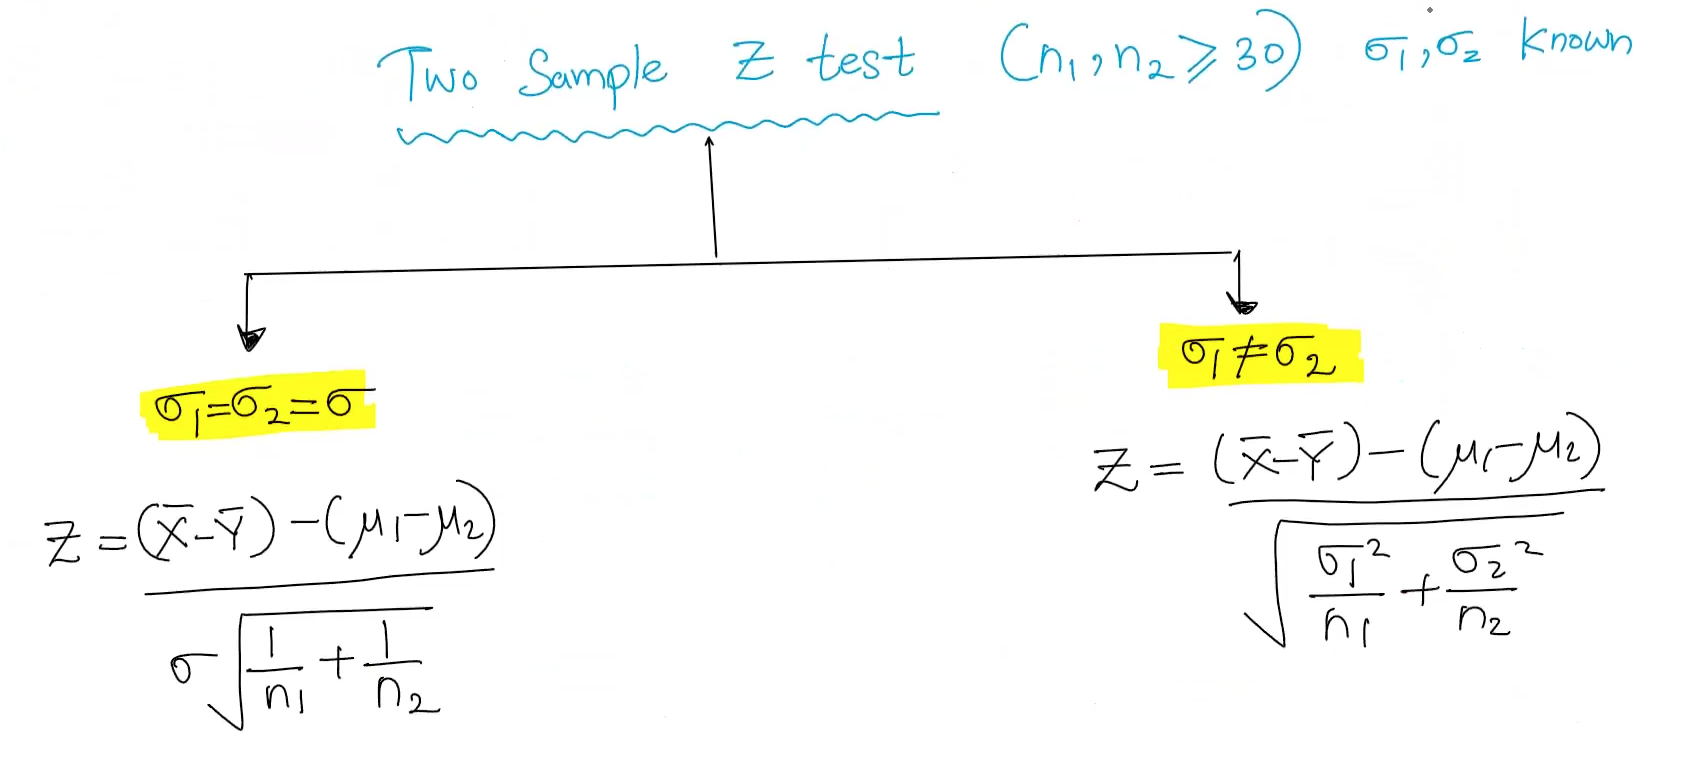 Two Sample Z test (n₁,n₂ ⩾ 30) σ₁,σ₂ Known
σ₁=σ₂=σ
σ₁≠σ₂
Z = (X̄-Ȳ) - (μ₁-μ₂) / σ√(1/n₁ + 1/n₂)
Z = (X̄-Ȳ) - (μ₁-μ₂) / √(σ₁²/n₁ + σ₂²/n₂)